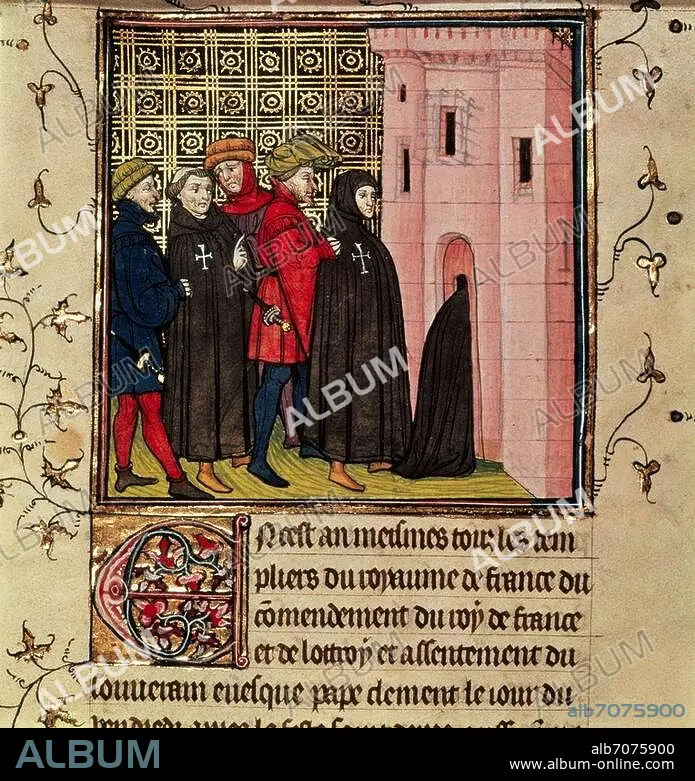 En cest an meismes touz les tem
pliers du royaume de france du
cõmendement du roy de france
et de lottroy et assentement du
souuerain euesque pape clement le iour du
ALBUM
alb7075900
www.album-online.com
alb7075900